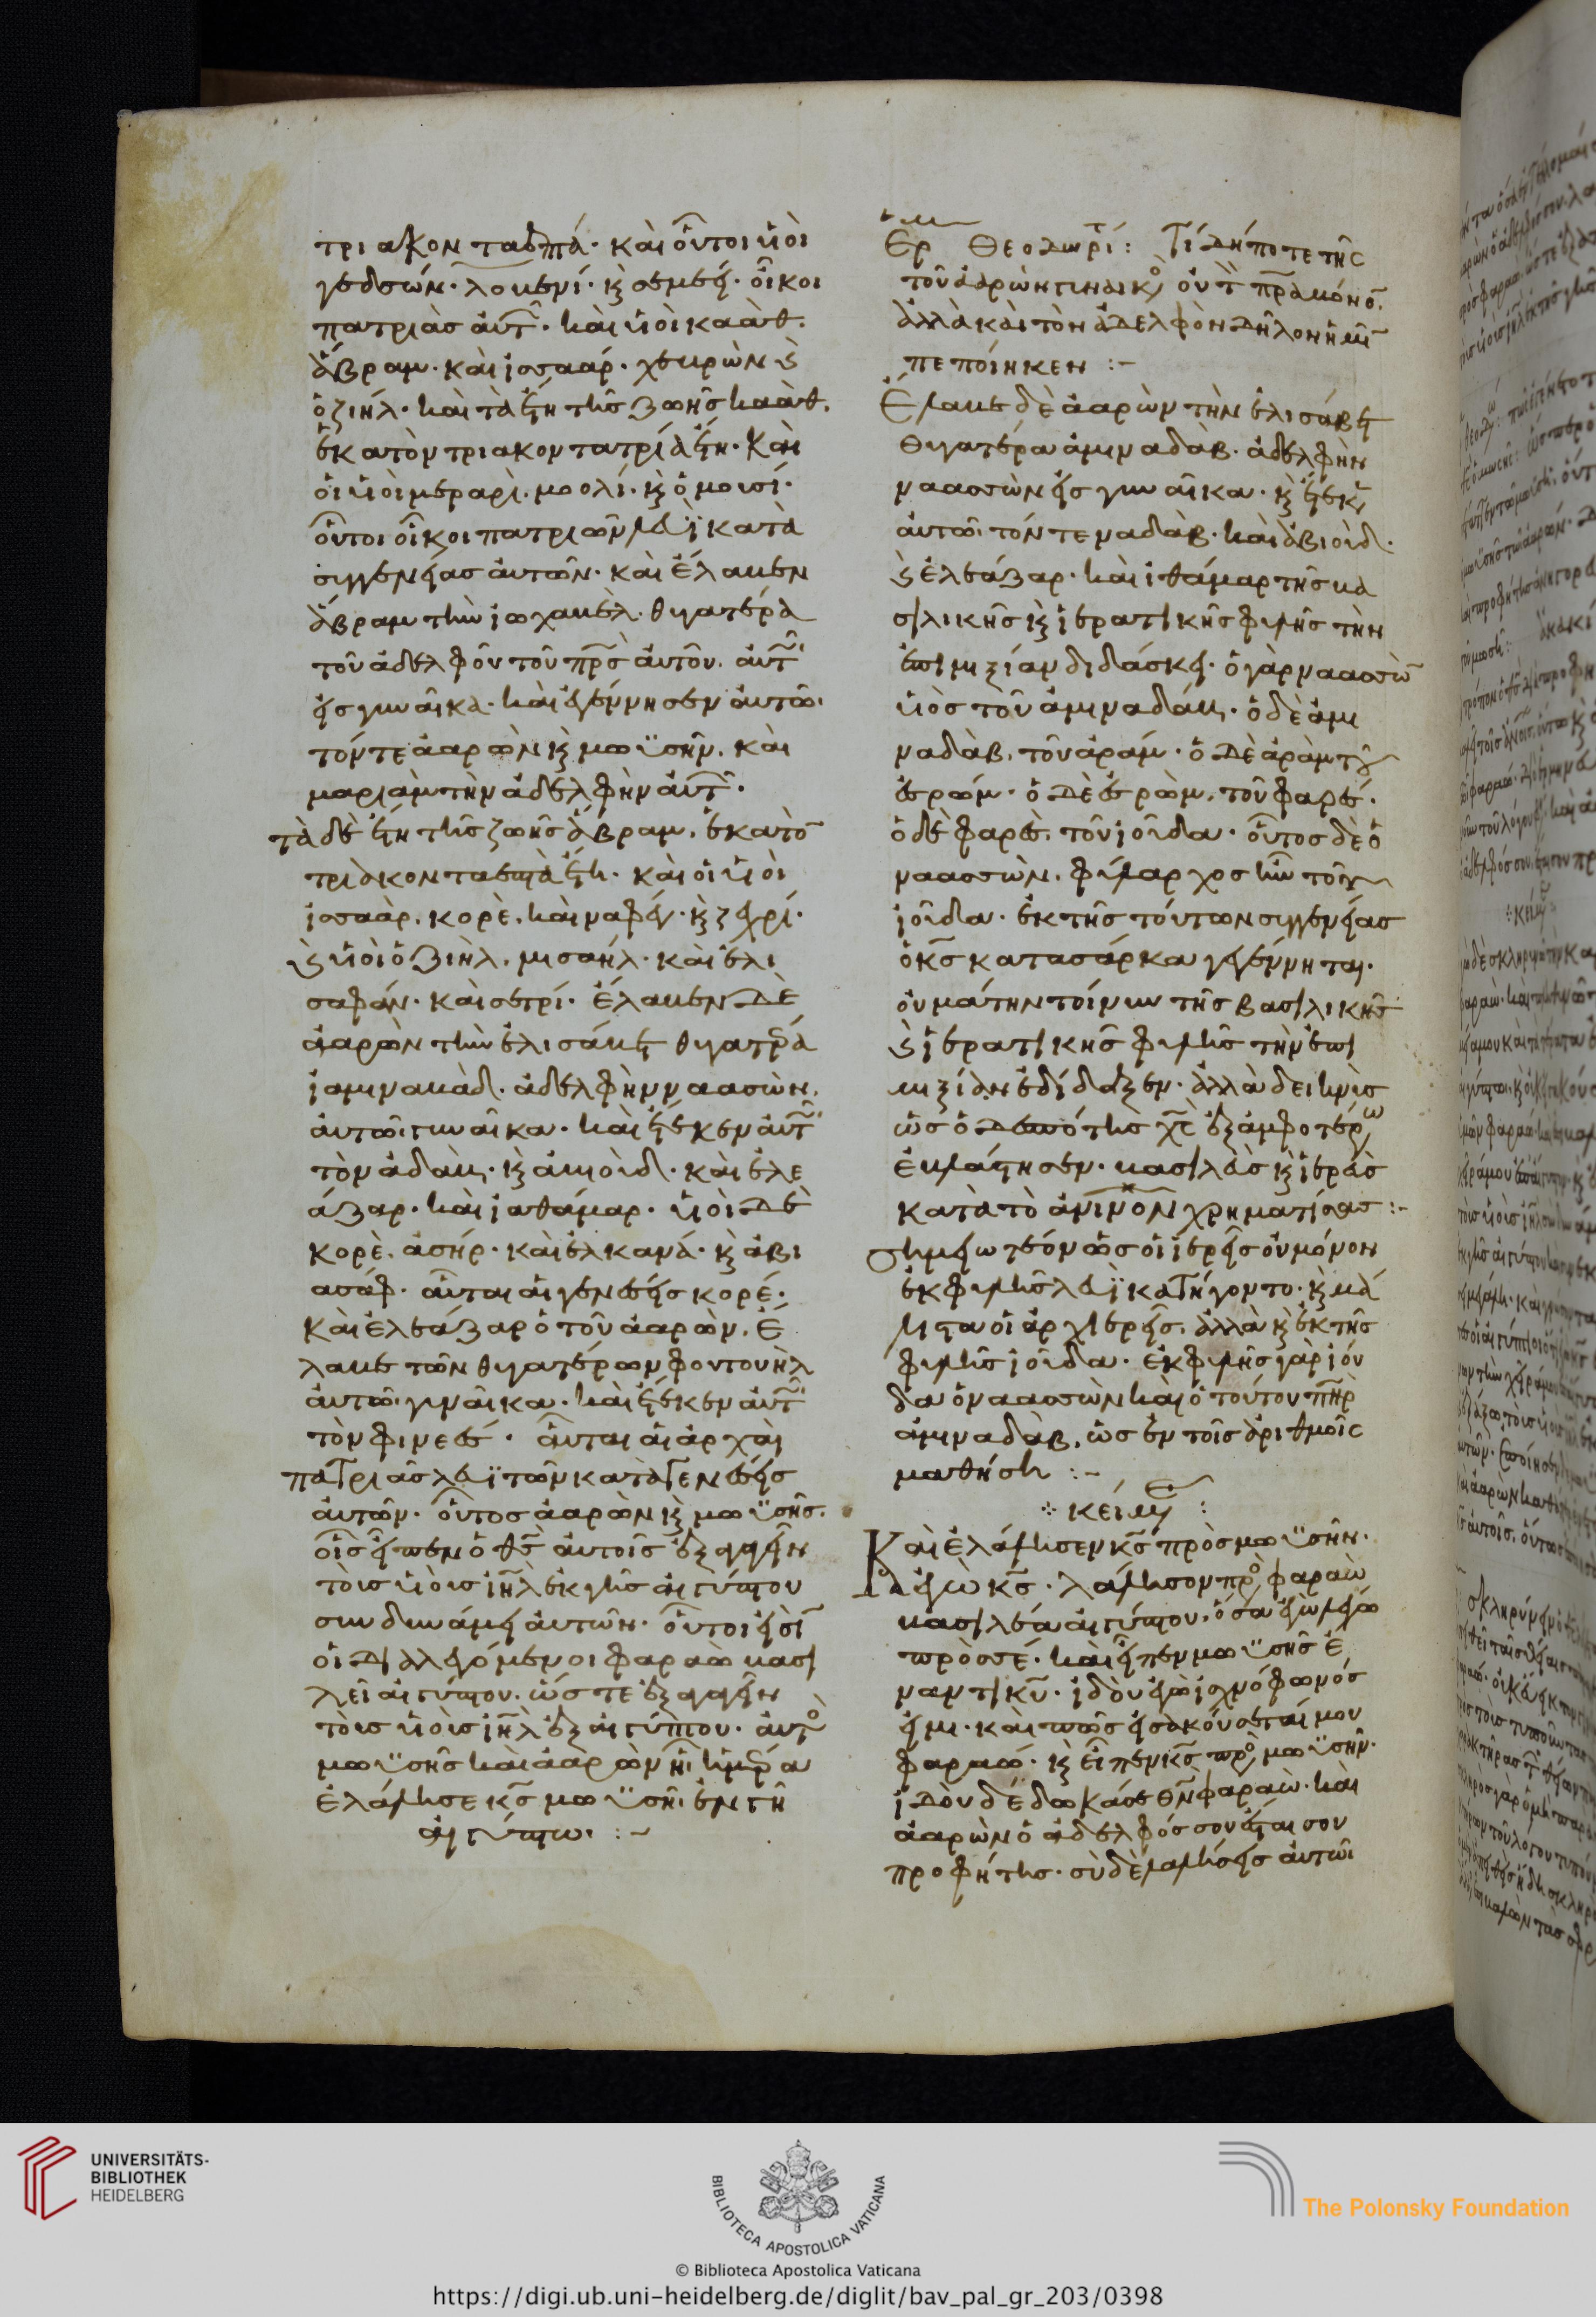 τριακονταεπτά· καὶ οὗτοι ὑἱοὶ
γεδσών· λοβενί· κ σεμεεί· οἶκοι
πατριὰσ αὐτ· καὶ ὑἱοὶ καὰθ·
ἄβραμ· καὶ ἰσσαάρ· χευρὼν κ
ὀζιήλ· καὶ τὰ ἔτη τῆσ ζωῆσ καὰθ·
ἑκατὸν τριακοντατρία ἔτη· καὶ
οἱ ὑἱοὶ μεραρὶ· μοολί· κ ὁ μουσί·
οὗτοι οἶκοι πατριῶν λευῒ κατὰ
συγγενείασ αὐτῶν· καὶ ἔλαβεν
ἄβραμ τὴν ἰωχαβέλ· θυγατέρα
τοῦ ἀδελφοῦ τοῦ πρσ αὐτοῦ· αὐτ
εἰσ γυναῖκα· καὶ ἐγέννησεν αὐτῶ·
τόν τε ἀαρὼν κ μωϋσῆν· καὶ
μαριὰμ τὴν ἀδελφὴν αὐτ·
τὰ δὲ ἔτη τῆσ ζωῆσ ἄβραμ· ἑκατὸ
τριάκονταεπτὰ ἔτη· καὶ οἱ ὑἱοὶ
ἰσσαὰρ· κορὲ· καὶ ναφέγ· κ ζεχρί·
κ ὑἱοὶ ὀζιὴλ· μισαήλ· καὶ ἐλι
σαφάν· καὶ σετρί· ἔλαβεν δὲ
ἀαρὼν τὴν ἐλισάβετ θυγατρα
ἰαμιναβὰδ· ἀδελφὴν ναασὼν·
αὐτῶ γυναῖκα· καὶ ἔτεκεν αὐτ
τὸν ἀδὰβ· κ ἀβιοὺδ· καὶ ἐλε
άζαρ· καὶ ἰαθάμαρ· ὑἱοὶ δὲ
κορὲ· ἀσήρ· καὶ ἐλκανά· κ ἀβι
ασάφ· αὗται αἱ γενέσεισ κορέ·
καὶ ἐλεάζαρ ὁ τοῦ ἀαρών· ἔ
λαβε τῶν θυγατέρων φουτουὴλ
αὐτῶ γυναῖκα· καὶ ἔτεκεν αὐτ
τὸν φινεές· αὗται αἱ ἀρχαὶ
πατριᾶσ λευϊτῶν κατὰ γενέσεισ
αὐτῶν· οὗτοσ ἀαρὼν κ μωϋσῆσ·
οἷσ εἶπεν ὁ θσ αὐτοῖσ ἐξαγαγεῖν
τοὺσ ὑἱοὺσ ιηλ ἐκ γῆσ αἰγύπτου
συν δυνάμει αὐτῶν· οὗτοι εἰσὶ
οἱ διαλεγόμενοι φαραὼ βασι
λεῖ αἰγύπτου· ὥστε ἐξαγαγεῖν
τοὺσ ὑἱοὺσ ιηλ ἐξ αἰγύπτου· αὐτὸ
μωϋσῆσ καὶ ἀαρὼν ἧ ἡμρα
ἐλάλησε κσ μωϋσῆ· ἐν γῆ
αἰγύπτω· :-
Ερ Θεοδωρί: Τί δήποτε τῆς
τοῦ ἀαρὼν γυναικὸ οὐ τ πρα μόνο·
ἀλλὰ καὶ τὸν ἀδελφὸν δῆλον ἡμῖ
πεποίηκεν :-
Ἔλαβε δὲ ἀαρὼν τὴν ἐλισάβετ
θυγατέρα ἀμιναδὰβ· ἀδελφὴν
ναασσὼν εἰσ γυναῖκα· κ ἔτεκε
αὐτῶ τόν τε ναδὰβ· καὶ ἀβιοὺδ·
κ ἐλεάζαρ· καὶ ἰθάμαρ τῆσ βα
σιλικῆσ κ ἱερατικῆσ φυλῆσ τὴν
ἐπιμιξίαν διδάσκει· ὁ γὰρ ναασσὼ
ὑἱὸσ τοῦ ἀμιναδάβ· ὁ δὲ ἀμι
ναδὰβ· τοῦ ἀράμ· ὁ δὲ ἀρὰμ τοῦ
ἐσρώμ· ὁ δὲ ἐσρὼμ· τοῦ φαρές·
ὁ δὲ φαρὲς· τοῦ ἰούδα· οὗτοσ δὲ ὁ
ναασσὼν· φύλαρχοσ ἦν τοῦ
ἰούδα· ἐκ τῆσ τούτων συγγενείασ
ὁ κσ κατασάρκα γεγέννηται·
οὐ μάτην τοίνυν τῆσ βασιλικῆσ
κ ἱερατικῆσ φυλῆσ τὴν ἐπι
μιξίαν ἐδίδαξεν· ἀλλὰ δεικνὺσ
ὡσ ὁ δεσπότησ χσ ἐξ ἀμφοτέρω
ἐβλάστησεν· βασιλεὺσ κ ἱερεὺσ
κατὰ τὸ ἀνινον χρηματίσασ :-
σημειωτέον ὡσ οἱ ἱερεῖσ οὐ μόνον
ἐκ φυλῆσ λευῒ κατήγοντο· κ μά
λιστα οἱ ἀρχιερεῖσ· ἀλλὰ κ ἐκ τῆσ
φυλῆσ ἰούδα· ἐκ φυλῆσ γὰρ ἰού
δα ὁ ναασσὼν καὶ ὁ τούτου πηρ
ἀμιναδὰβ, ὡσ ἐν τοῖσ ἀριθμοῖς
μαθήση :-
κείμε :
Καὶ ἐλάλησεν κσ πρὸσ μωϋσῆν·
λέγων ἐγὼ κσ· λάλησον πρὸ φαραὼ
βασιλέα αἰγύπτου· ὅσα ἐγὼ λέγω
πρὸσ σέ· καὶ εἶπεν μωϋσῆσ ἐ
ναντι κυ· ἰδοὺ ἐγὼ ἰσχνόφωνόσ
εἰμι· καὶ πῶσ εἰσακούσεταί μου
φαραώ· κ εἶπεν κσ πρὸ μωϋσῆν·
ἰδοὺ δέδωκά σε θν φαραὼ· καὶ
ἀαρὼν ὁ ἀδελφόσ σου ἔσται σου
προφήτησ· σὺ δὲ λαλήσεισ αὐτῶ
UNIVERSITÄTS-
BIBLIOTHEK
HEIDELBERG
BIBLIOTECA APOSTOLICA VATICANA
The Polonsky Foundation
© Biblioteca Apostolica Vaticana
https://digi.ub.uni-heidelberg.de/diglit/bav_pal_gr_203/0398